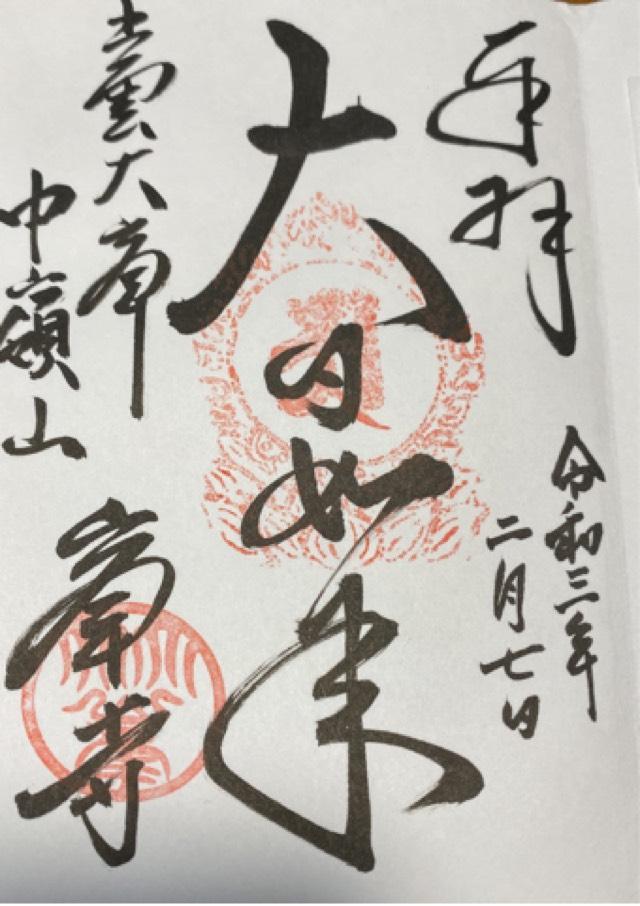 奉拝
令和三年
二月七日
大日如来
出雲大峯
中嶺山
峯寺